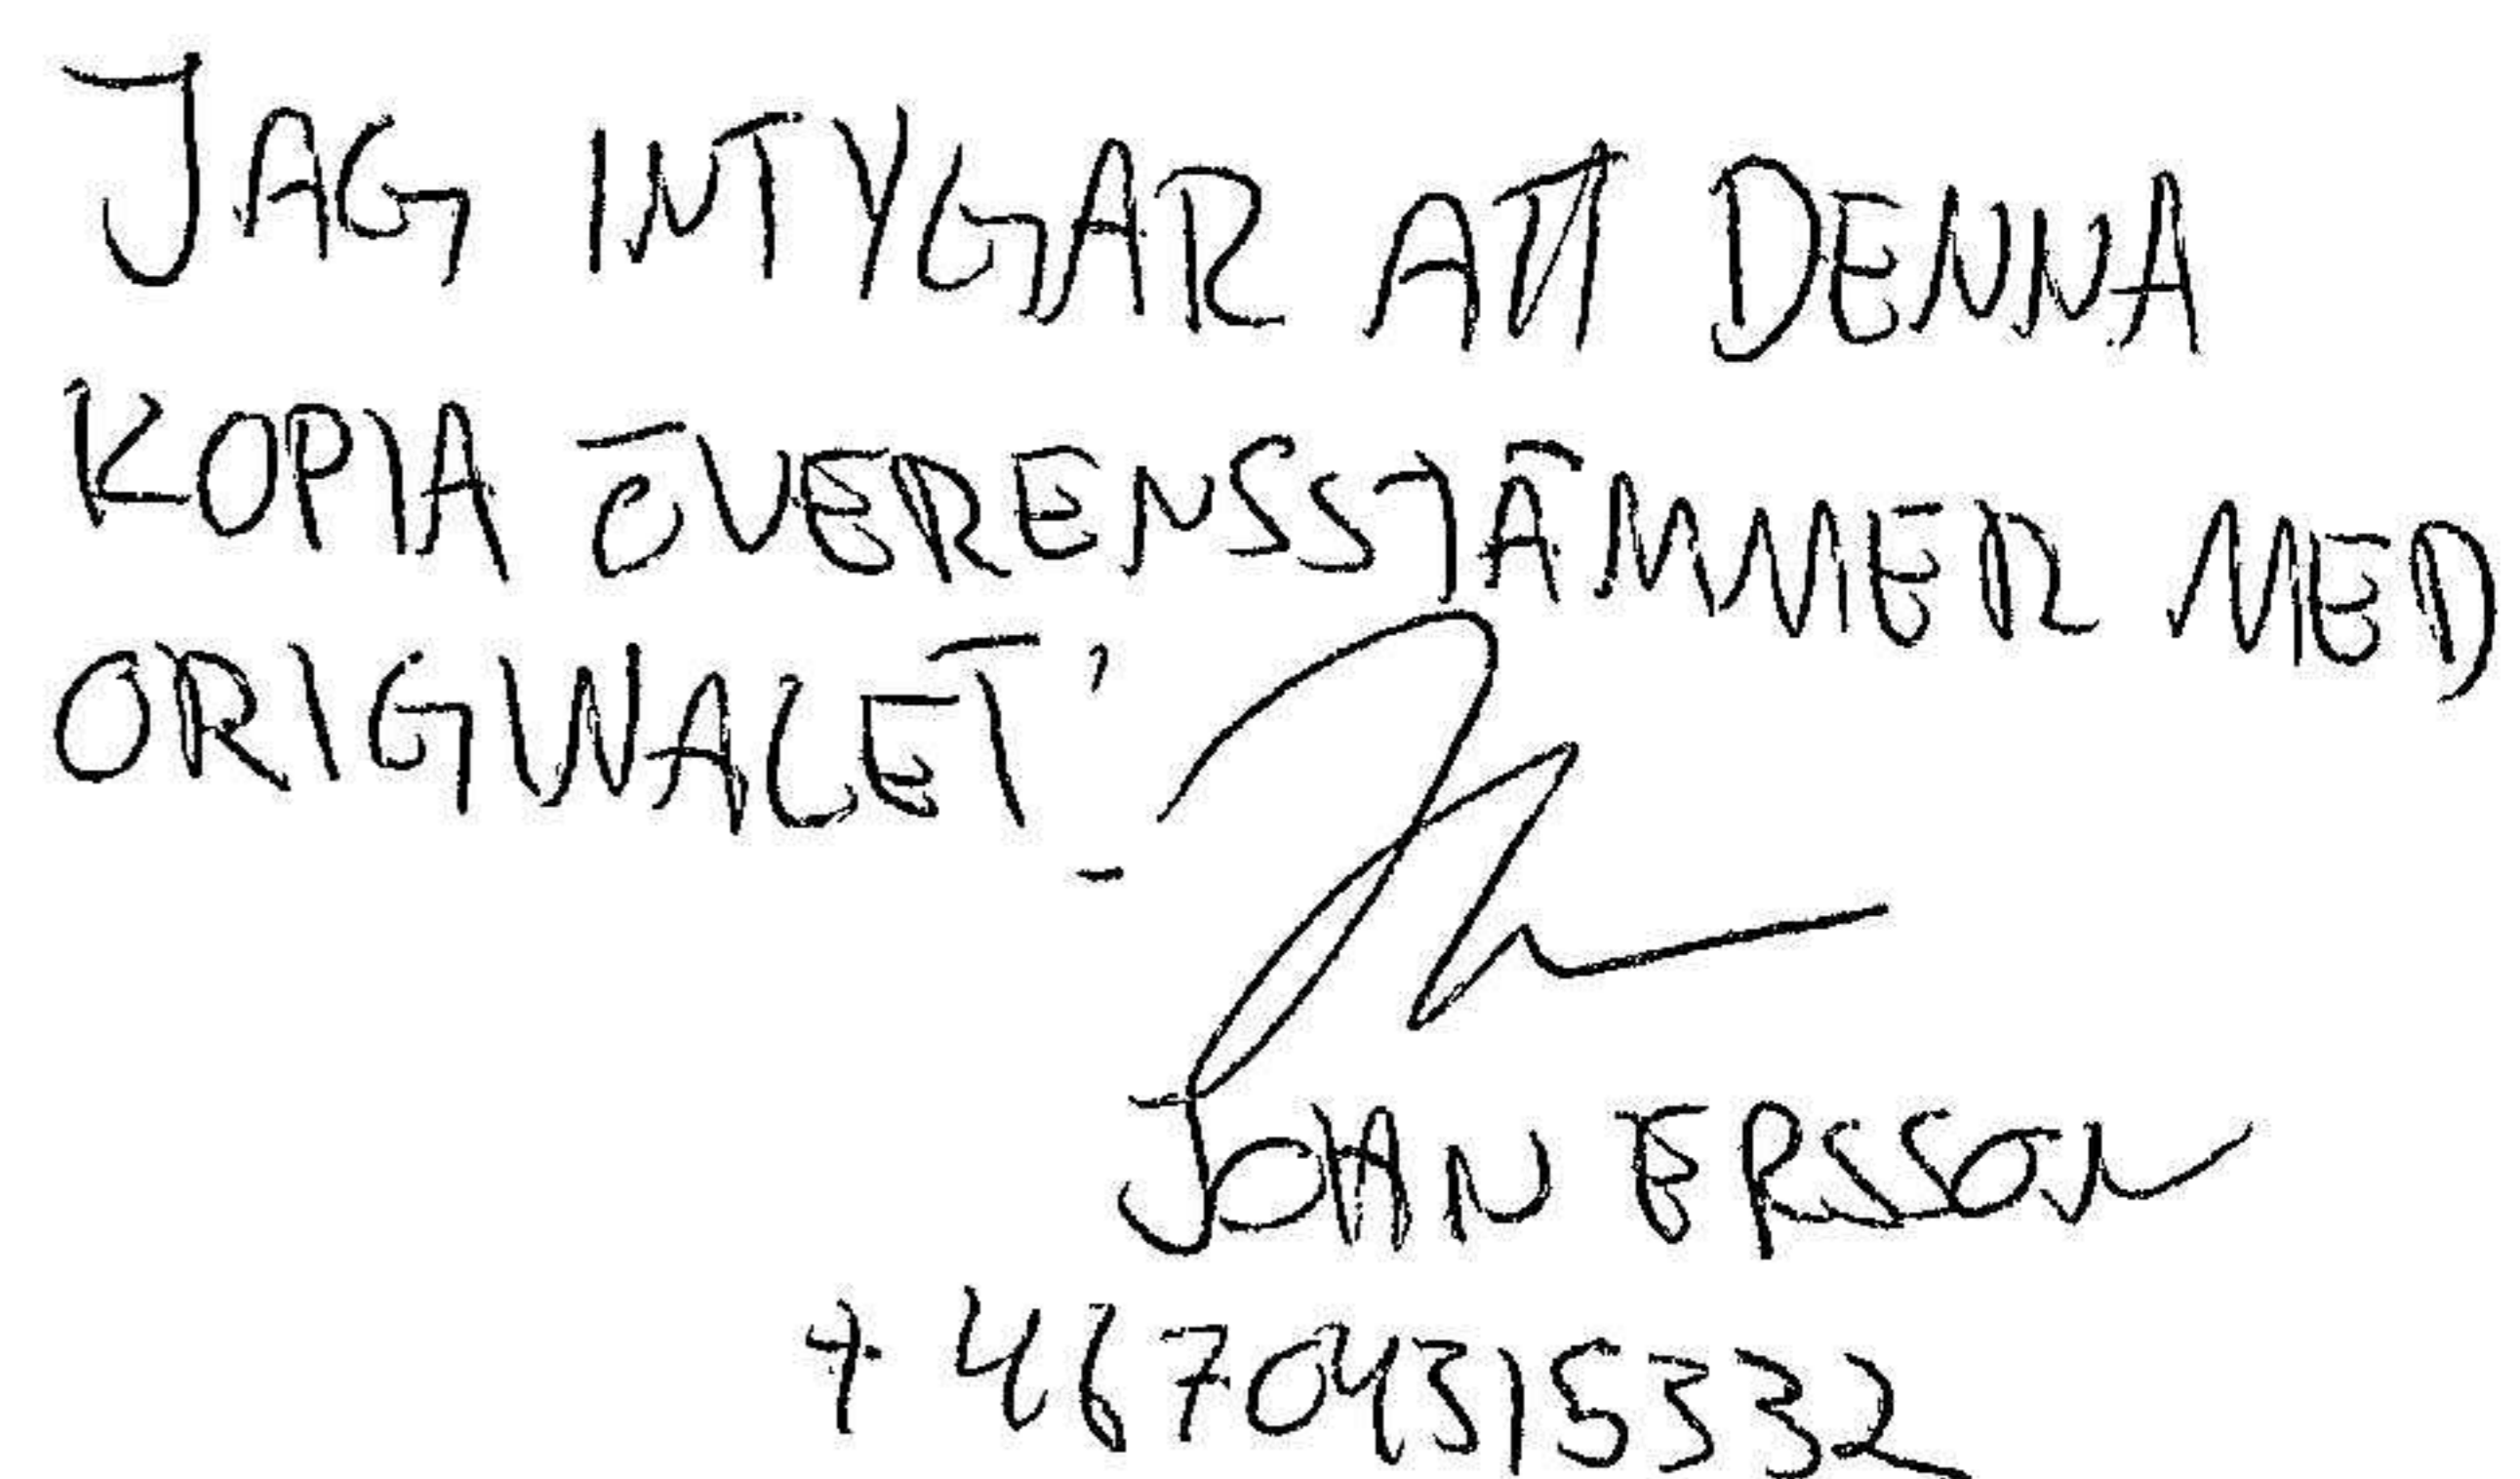 JAG INTYGAR ATT DENNA
KOPIA ÖVERENSSTÄMMER MED
ORIGINALET
JOHAN ERSSON
+46704315332